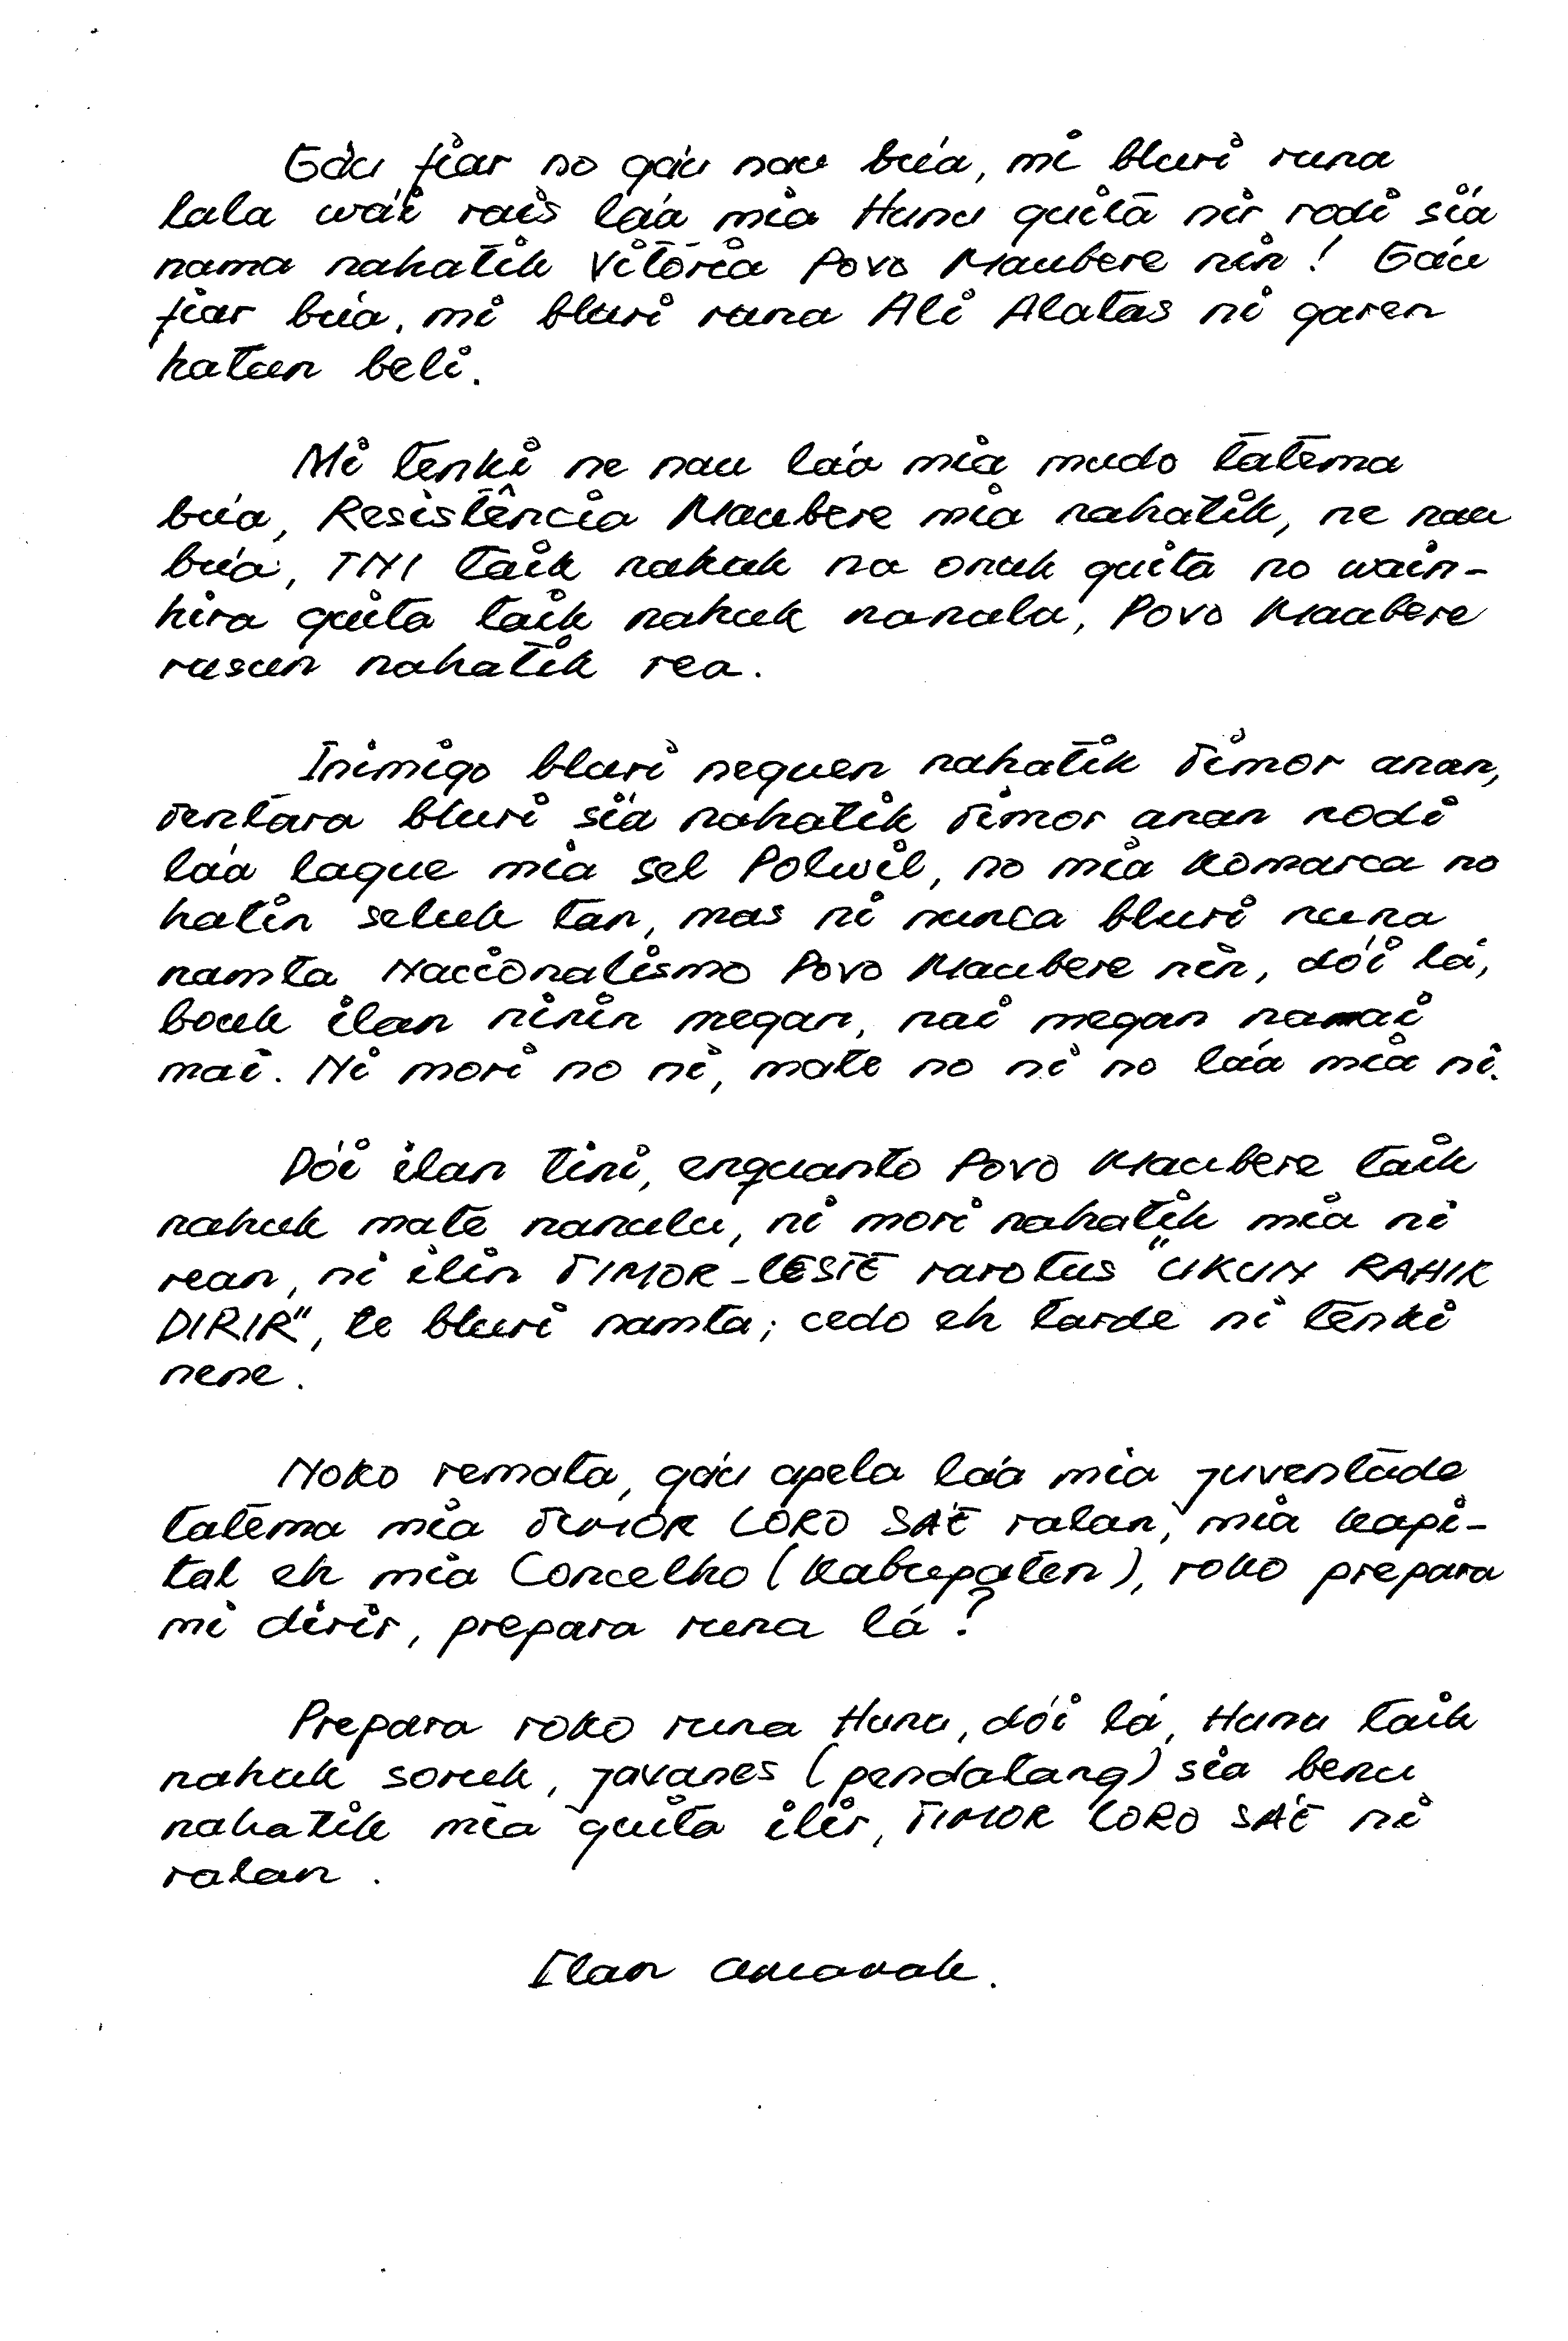 Gáu fiar no gáu nau búa, mi bluri runa
lala wái rais láa mia Hunu quita nir rodi sía
nama nahatik Vitória Povo Maubere nin! Gáu
fiar búa, mi bluri runa Ali Alatas ni garen
hatun beli.
Mi tenki ne nau láa mia mudo tatema
búa, Resistência Maubere mia nahatik, ne nau
búa, TNI taik nahuk na onuk quita no wain-
hira quita taik nahuk nanulu, Povo Maubere
rusun nahatik rea.
Inimigo bluri nequen nahatik Timor anan,
Tentara bluri sía nahatik Timor anan rodi
láa laque mia sel Polwil, no mia Komarca no
hatin seluk tan, mas ni nunca bluri nuna
namta Nacionalismo Povo Maubere nin, dói lá,
bouk ilan ninin megan, nai megan namai
mai. Ni mori no ni, mate no ni no láa mia ni.
Dói ilan tini, enquanto Povo Maubere taik
nahuk mate nanulu, ni mori nahatik mia ni
rean, ni ilin TIMOR-LESTE rarotus "UKUN RAHIK
DIRIR", te bluri namta; cedo eh tarde ni tenki
nene.
Noko remata, gáu apela láa mia juventude
tatema mia TIMOR LORO SA'E ralan, mia kapi-
tal eh mia Concelho (Kabupaten), roko prepara
mi dirir, prepara runa lá?
Prepara roko runa Hunu, dói lá, Hunu taik
nahuk soruk, javanes (pendatang) sia benu
nahatik mia quita ilir, TIMOR LORO SA'E ni
ralan.
Ilan